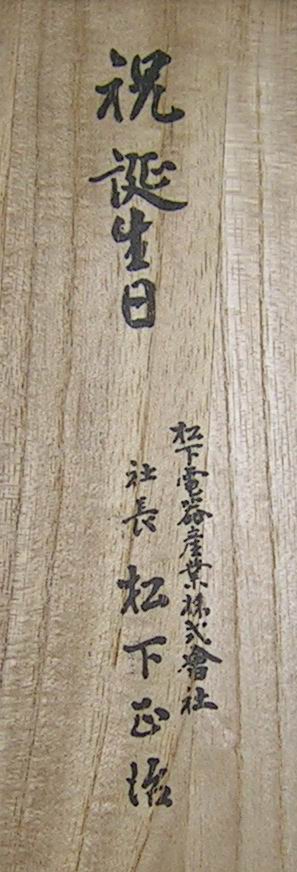 祝 誕生日
松下電器産業株式會社
社長 松下正治